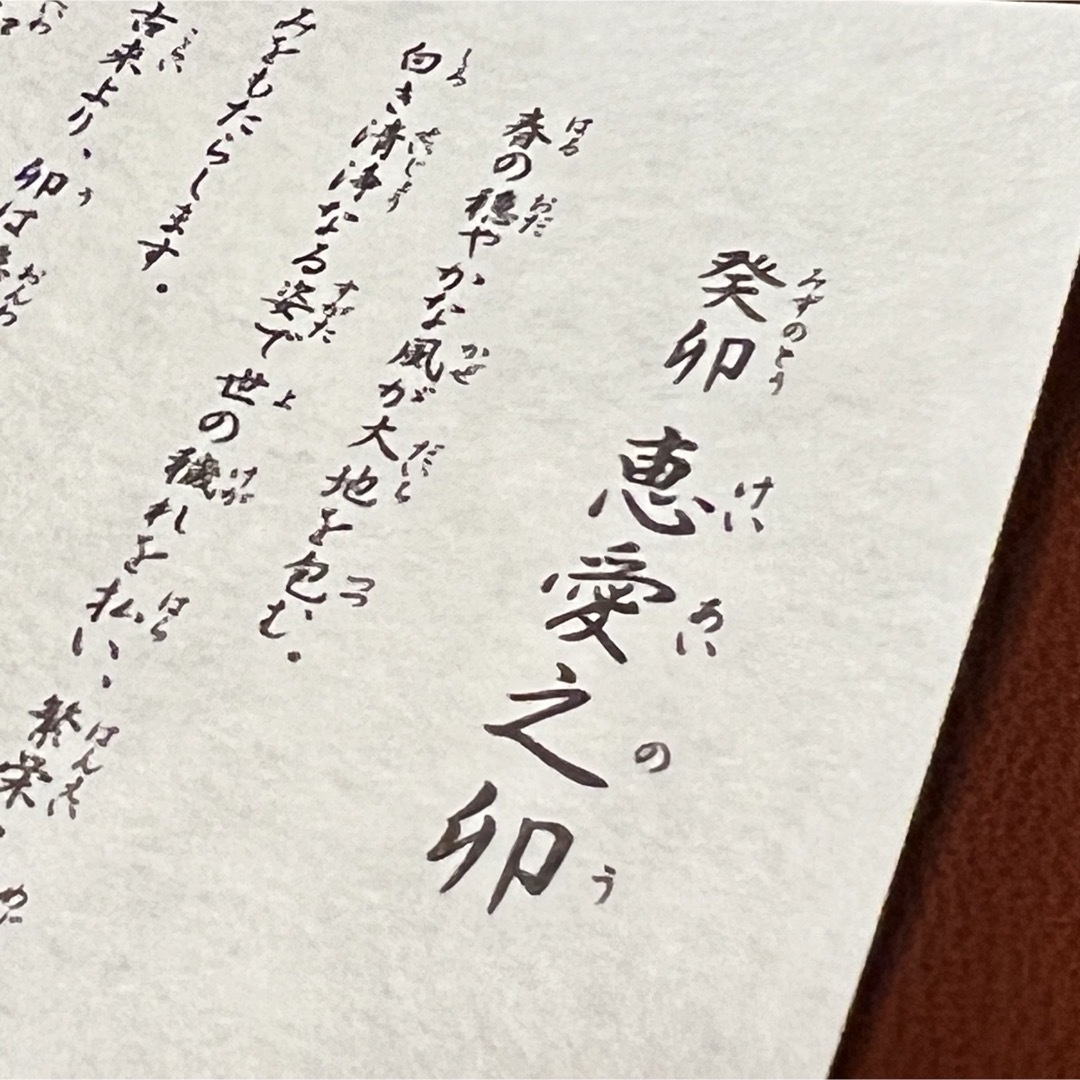 癸卯 恵愛之卯
みずのとう けい あい の う
春の穏やかな風が大地を包む。
はる おだ かぜ だいち つつ
白き清浄なる姿で世の穢れを払い、繁栄
しろ せいじょう すがた よ けが はら はんえい
みをもたらします。
古来より、卯は
こらい う